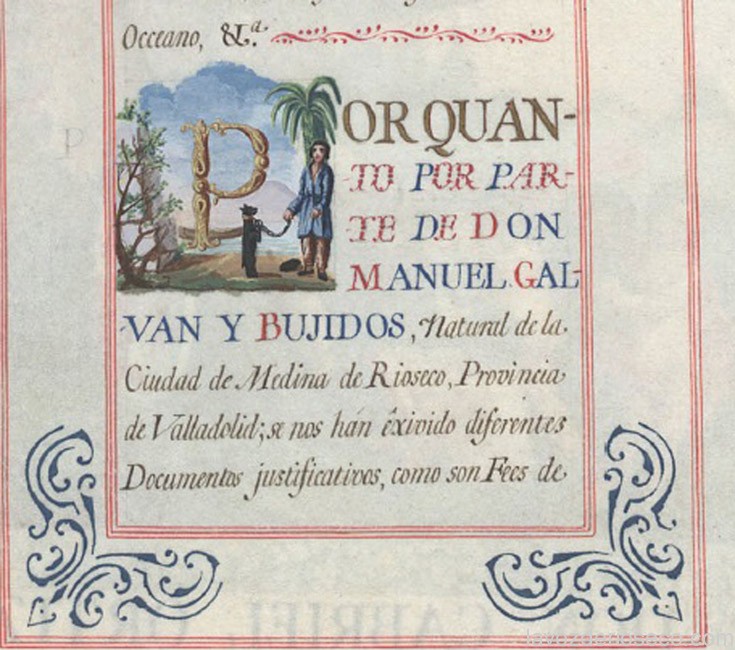 Occeano, &.ª
POR QUAN-
TO POR PAR-
TE DE DON
MANUEL GAL-
VAN Y BUJIDOS, Natural de la
Ciudad de Medina de Rioseco, Provincia
de Valladolid; se nos hán êxivido diferentes
Documentos justificativos, como son Fees de